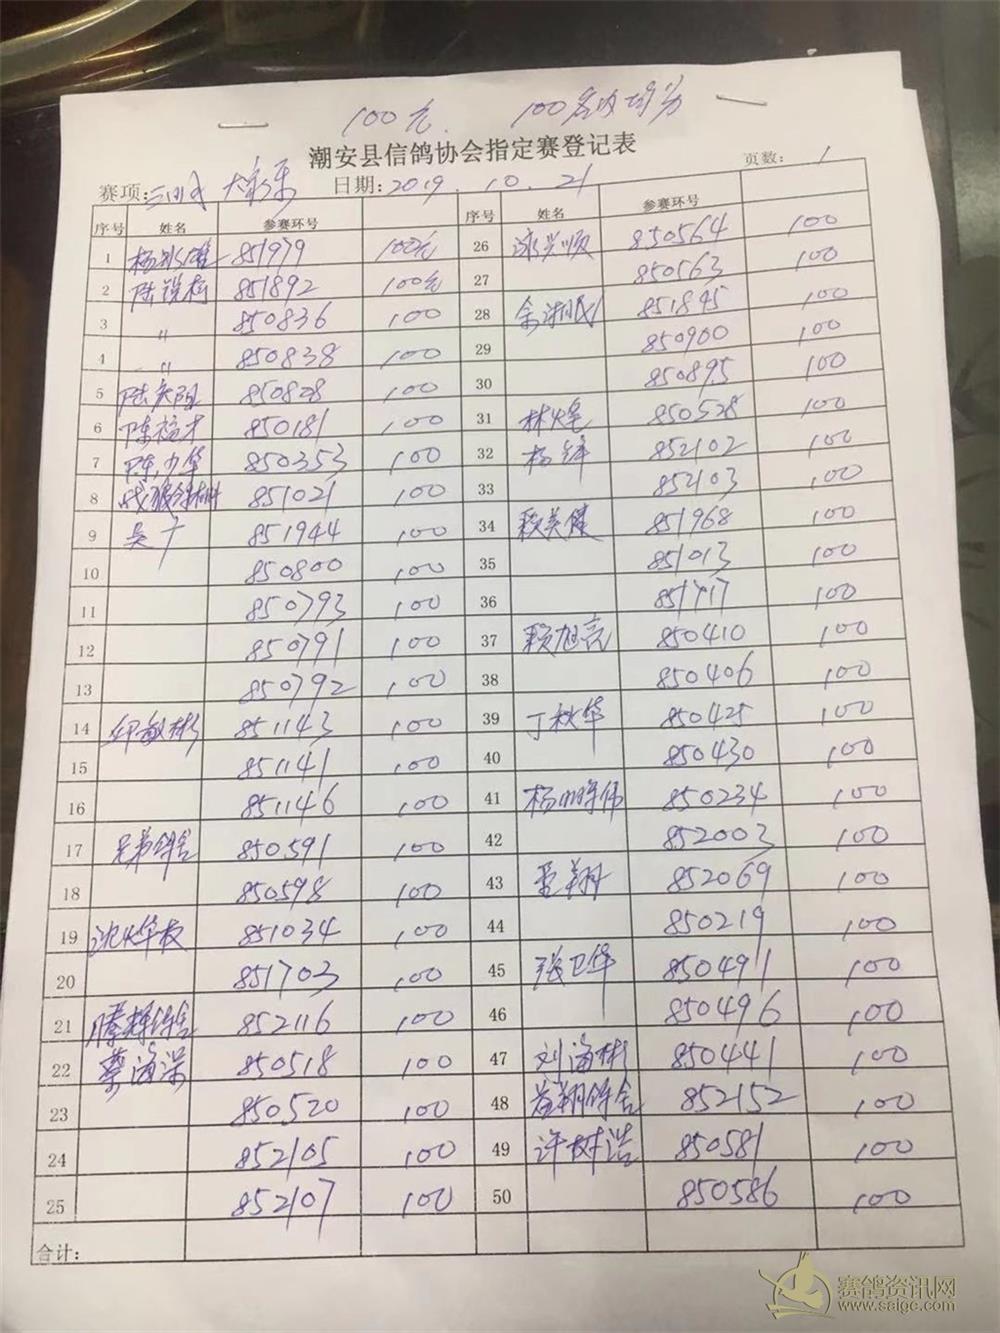 100元 100名内均分
潮安县信鸽协会指定赛登记表
赛项: 日期:2019.10.21 页数: 1
序号 姓名 参赛环号 序号 姓名 参赛环号
1 851979 100元 26 850564 100
2 851892 100元 27 850563 100
3 〃 850836 100 28 851895 100
4 〃 850838 100 29 850900 100
5 850828 100 30 850895 100
6 850181 100 31 850528 100
7 850353 100 32 杨锋 852102 100
8 851021 100 33 852103 100
9 851944 100 34 851968 100
10 850800 100 35 851013 100
11 850793 100 36 851717 100
12 850791 100 37 赖旭亮 850410 100
13 850792 100 38 850406 100
14 邱敏彬 851143 100 39 丁秋华 850425 100
15 851141 100 40 850430 100
16 851146 100 41 850234 100
17 兄弟鸽舍 850591 100 42 852003 100
18 850598 100 43 852069 100
19 851034 100 44 850219 100
20 851703 100 45 张卫华 850491 100
21 852116 100 46 850496 100
22 蔡海深 850518 100 47 刘海彬 850441 100
23 850520 100 48 852152 100
24 852105 100 49 许树浩 850581 100
25 852107 100 50 850586 100
合计:
赛鸽资讯网
www.saigc.com